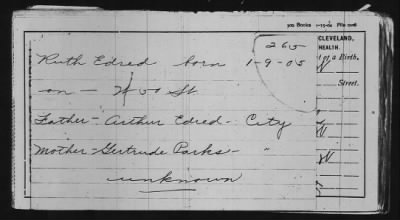 300 Books 1-15-04
CLEVELAND,
HEALTH.
of a Birth.
265
Ruth Edred born 1-9-05
on - W 50 St
Street.
Father - Arthur Edred - City
W
Mother - Gertrude Parks - "
W
unknown